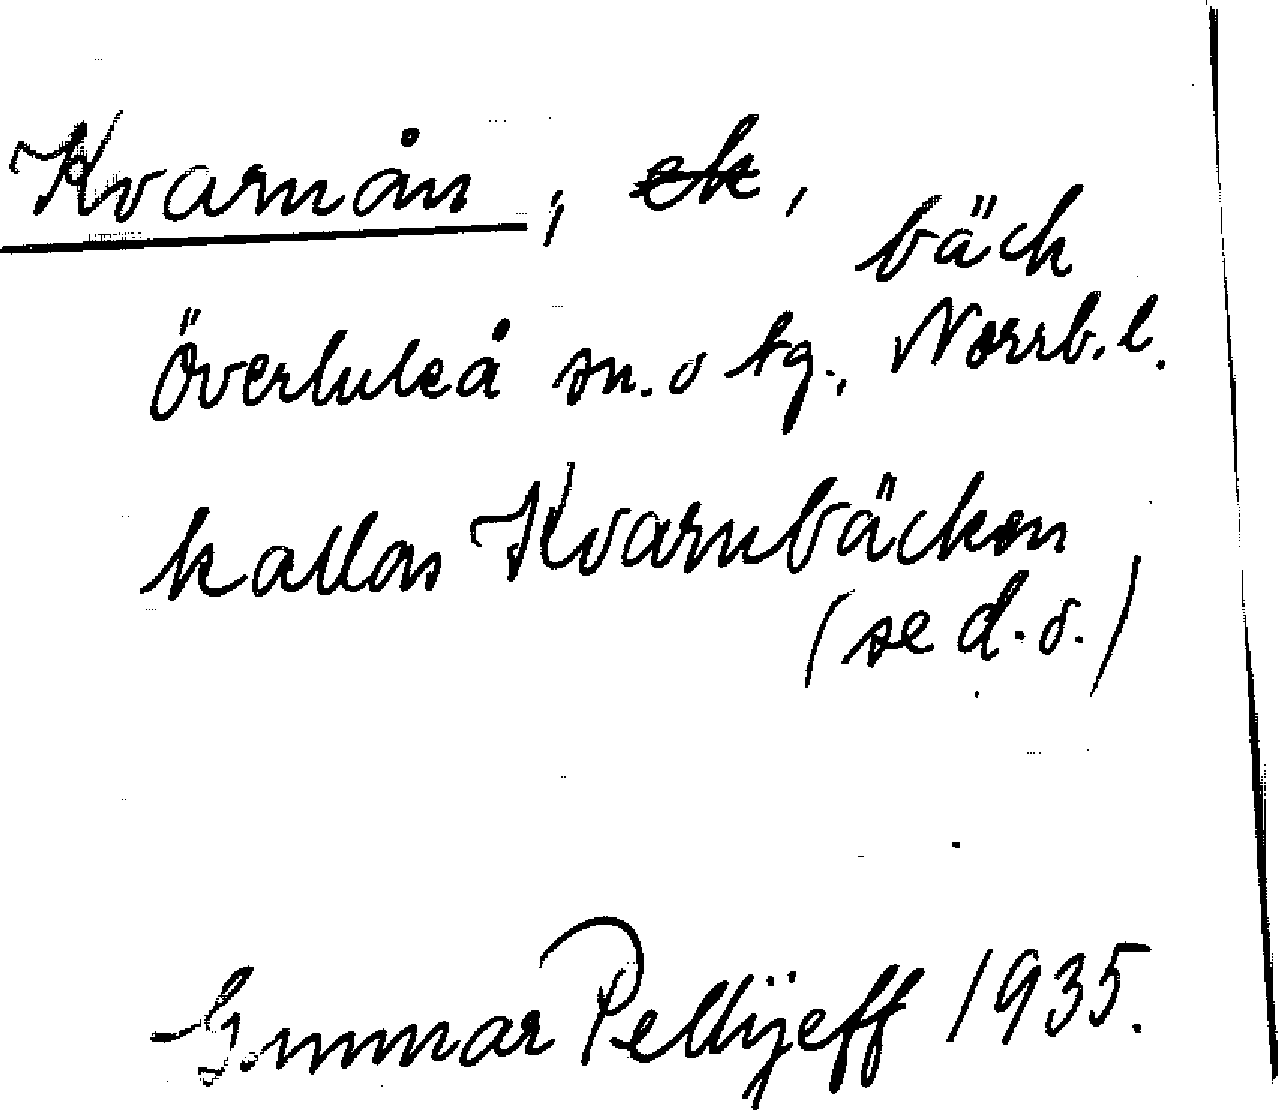 Kvarnån, ek, bäck
Överluleå sn. o tg., Norrb. l.
kallas Kvarnbäcken
(se d. o.)
Gunnar Pellijeff 1935.